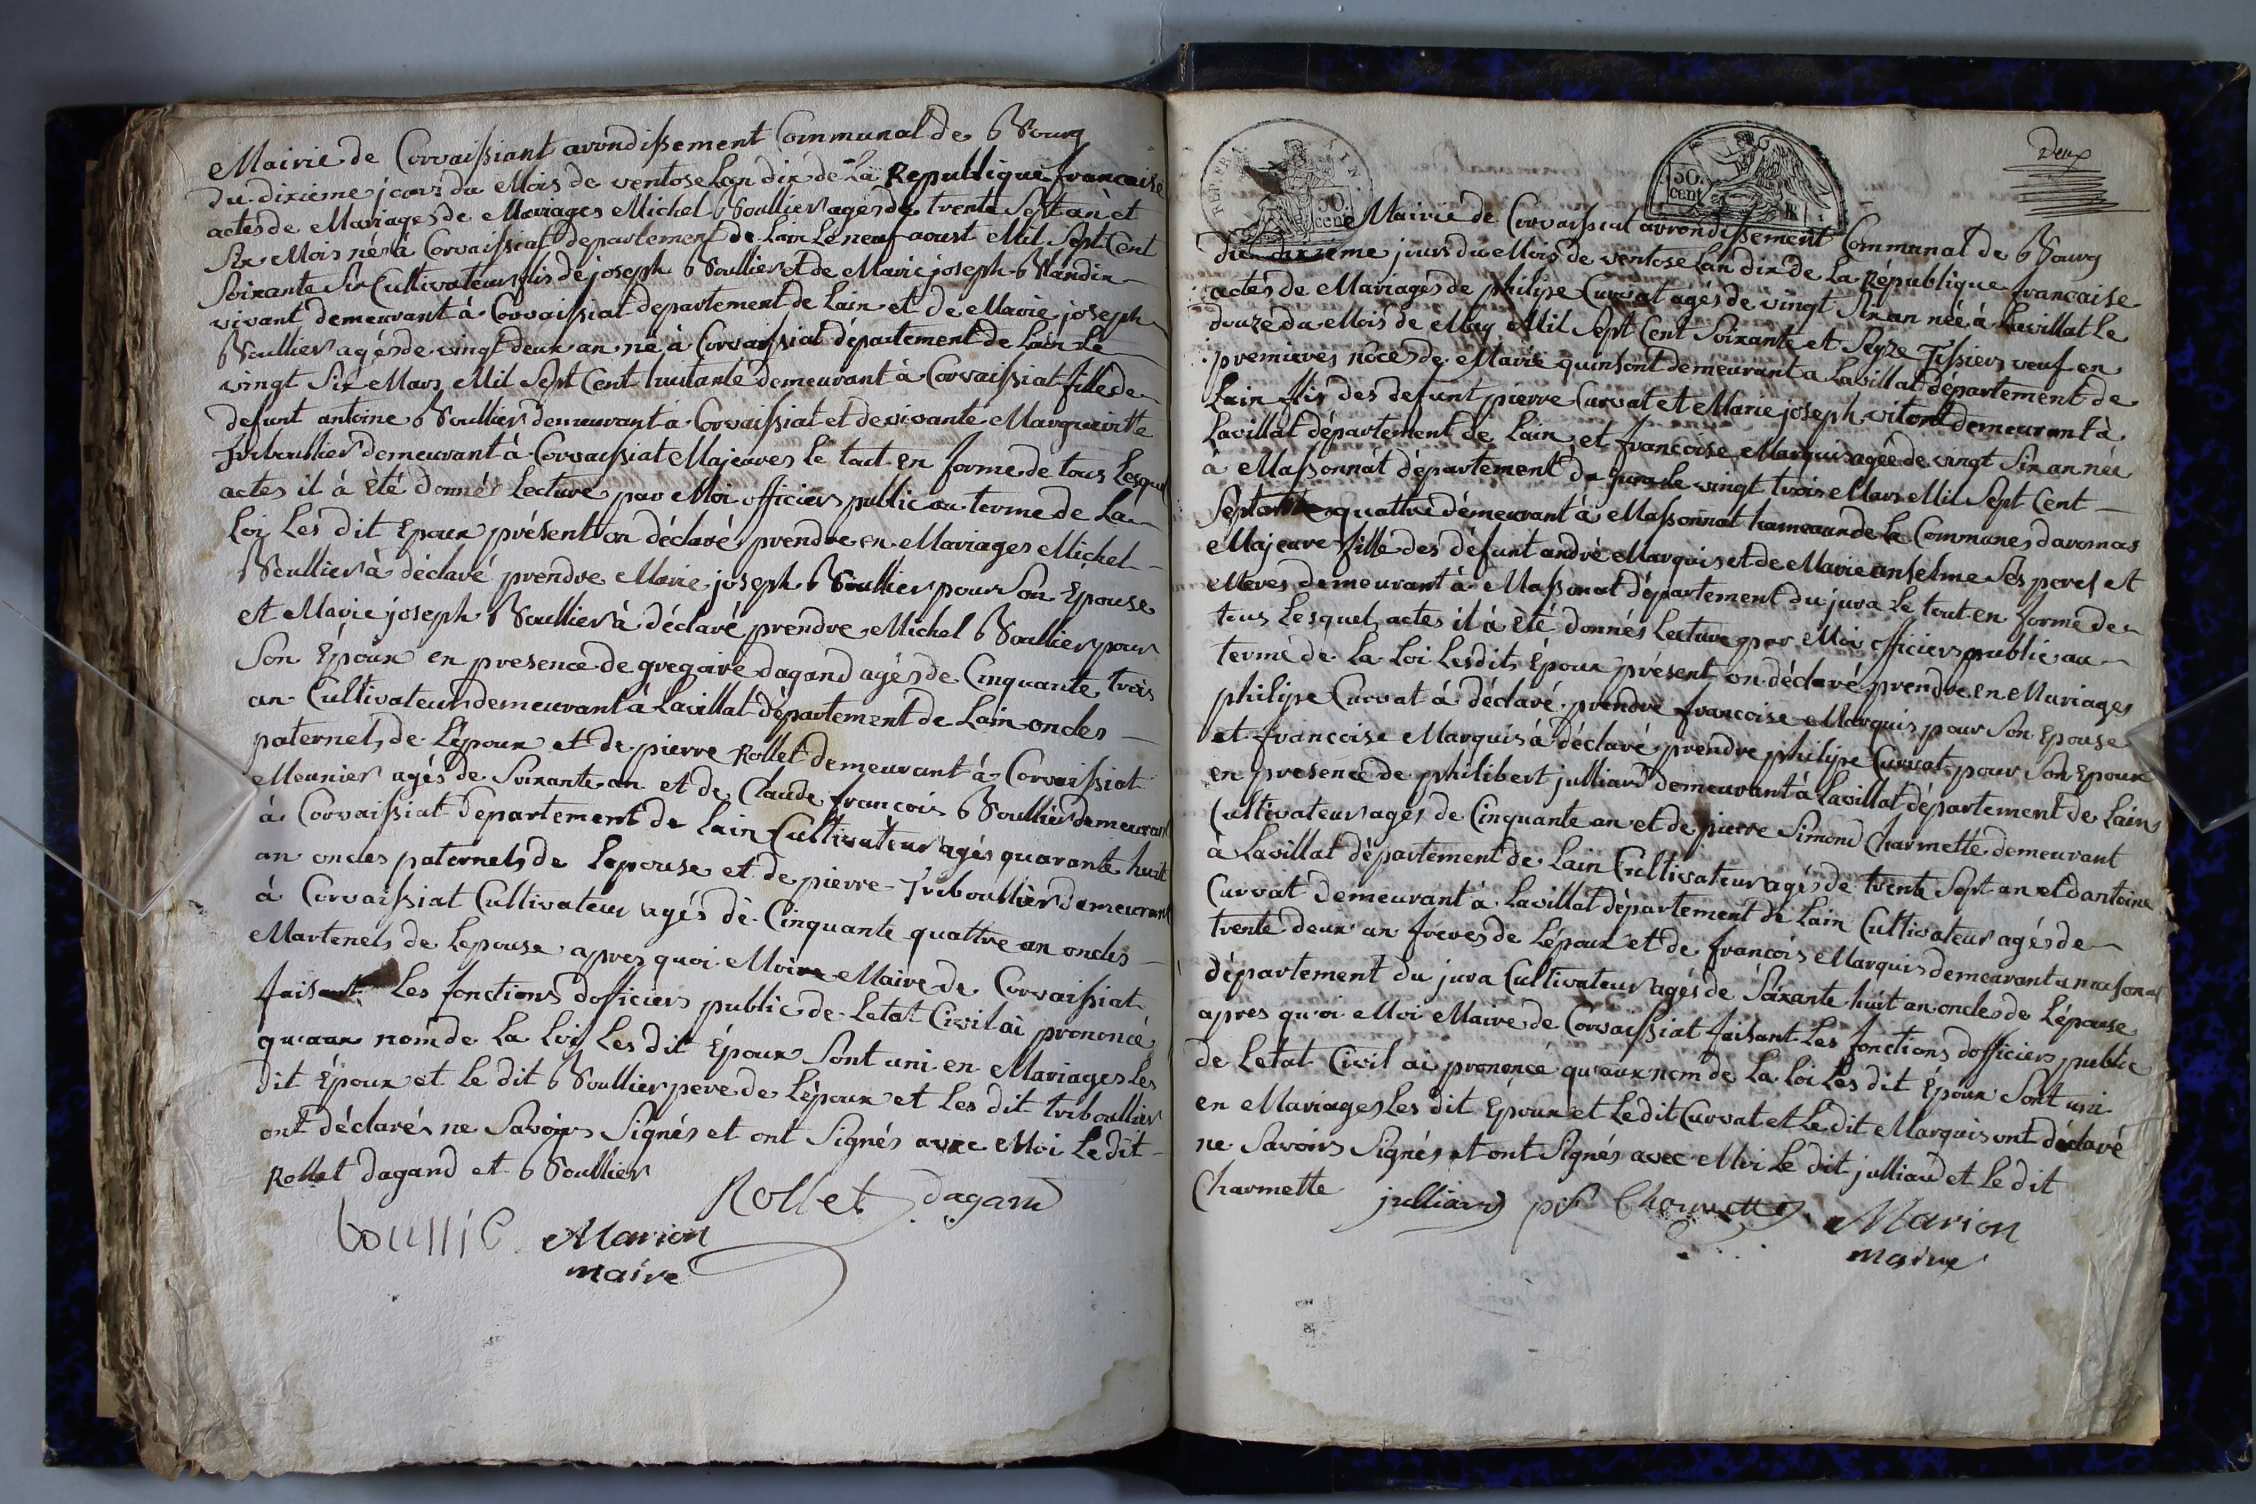 Mairie de Corvaissiant arondissement Communal de Bourg
du dixieme jour du Mois de ventose Lan dix de La Republique francaise
actes de Mariages de Mariages Michel Boullier agés de trente Sept an et
Six Mois né à Corvaissiat departement de Lain Le neuf aoust Mil Sept Cent
Soixante Six Cultivateur fils de joseph Boullier et de Marie joseph Blandin
vivant demeurant à Corvaissiat departement de Lain et de Marie joseph
Boullier agés de vingt deux an né à Corvaissiat département de Lain Le
vingt Six Mars Mil Sept Cent huitante demeurant à Corvaissiat fille de
defunt antoine Boullier demeurant à Corvaissiat et de vivante Margueritte
Triboullier demeurant à Corvaissiat Majeures Le tout en forme de tous Lesquel
actes il à èté donnér Lecture par Moi officiers public au terme de La
Loi Les dit Epoux présent on déclaré prendre en Mariages Michel
Boullier à déclaré prendre Marie joseph Boullier pour Son Epouse
et Marie joseph Boullier à déclaré prendre Michel Boullier pour
Son Époux en presence de gregoire dagand agés de Cinquante trois
an Cultivateur demeurant à Lavillat département de Lain oncles
paternels de Lépoux et de pierre Rollet demeurant à Corvaissiat
Meunier agés de Soixante an et de Claude francois Boullier demeurant
à Corvaissiat Departement de Lain Cultivateur agés quarante huit
an oncles paternels de Lepouse et de pierre Triboullier demeurant
à Corvaissiat Cultivateur agés de Cinquante quattre an oncles
Marternels de Lepouse apres quoi Moi Maire de Corvaissiat
faisant Les fonctions dofficiers public de Letat Civil ai prononcé
quaux nom de La Loi Les dit Époux Sont uni en Mariages Les
dit Époux et Le dit Boullier pere de Lépoux et Les dit triboullier
ont déclarés ne Savoirs Signés et ont Signés avec Moi Le dit
Rollet dagand et Boullier
Rollet dagand
boullie Marion
maire
Deux
REP. FRA
50.
cent
50.
cent
Mairie de Corvaissiat arrondissement Communal de Bourg
du dixieme jours du Mois de ventose Lan dix de La République francaise
actes de Mariages de philipe Curvat agés de vingt Six an née à Lavillat Le
douze du Mois de May Mil Sept Cent Soixante et Seyze Tissier veuf en
premieres noces de Marie quinsont demeurant a Lavillat département de
Lain fils des defunt pierre Curvat et Marie joseph vitont demeurant à
Lavillat département de Lain et francoise Marquis agée de vingt Six an née
à Massonnat département du jura Le vingt trois Mars Mil Sept Cent
Septante quattre démeurant à Massonnat hameaux de La Communes daromas
Majeure fille des défunt andré Marquis et de Marie anselme Ses peres et
Meres demeurant à Massonat département du jura Le tout en forme de
tous Lesquel actes il à èté donnés Lecture par Moi officiers public au
terme de La Loi Lesdits Époux présent on déclaré prendre en Mariages
philipe Curvat à déclaré prendre francoise Marquis pour Son Epouse
et francoise Marquis à déclaré prendre philipe Curvat pour Son Epoux
en presence de philibert julliard demeurant à Lavillat département de Lain
Cultivateur agés de Cinquante an et de pierre Simond Charmette demeurant
à Lavillat département de Lain Cultivateur agés de trente Sept an et dantoine
Curvat demeurant à Lavillat département de Lain Cultivateur agés de
trente deux an freres de Lépoux et de françois Marquis demeurant a masonat
département du jura Cultivateur agés de Soixante huit an oncles de Lépouse
apres quoi Moi Maire de Corvaissiat faisant Les fonctions dofficiers public
de Letat Civil ai prononcé quaux nom de La Loi Les dit Époux Sont uni
en Mariages Les dit Époux et Le dit Curvat et Le dit Marquis ont déclaré
ne Savoirs Signés et ont Signés avec Moi Le dit julliard et Le dit
Charmette julliard Charmette Marion
maire